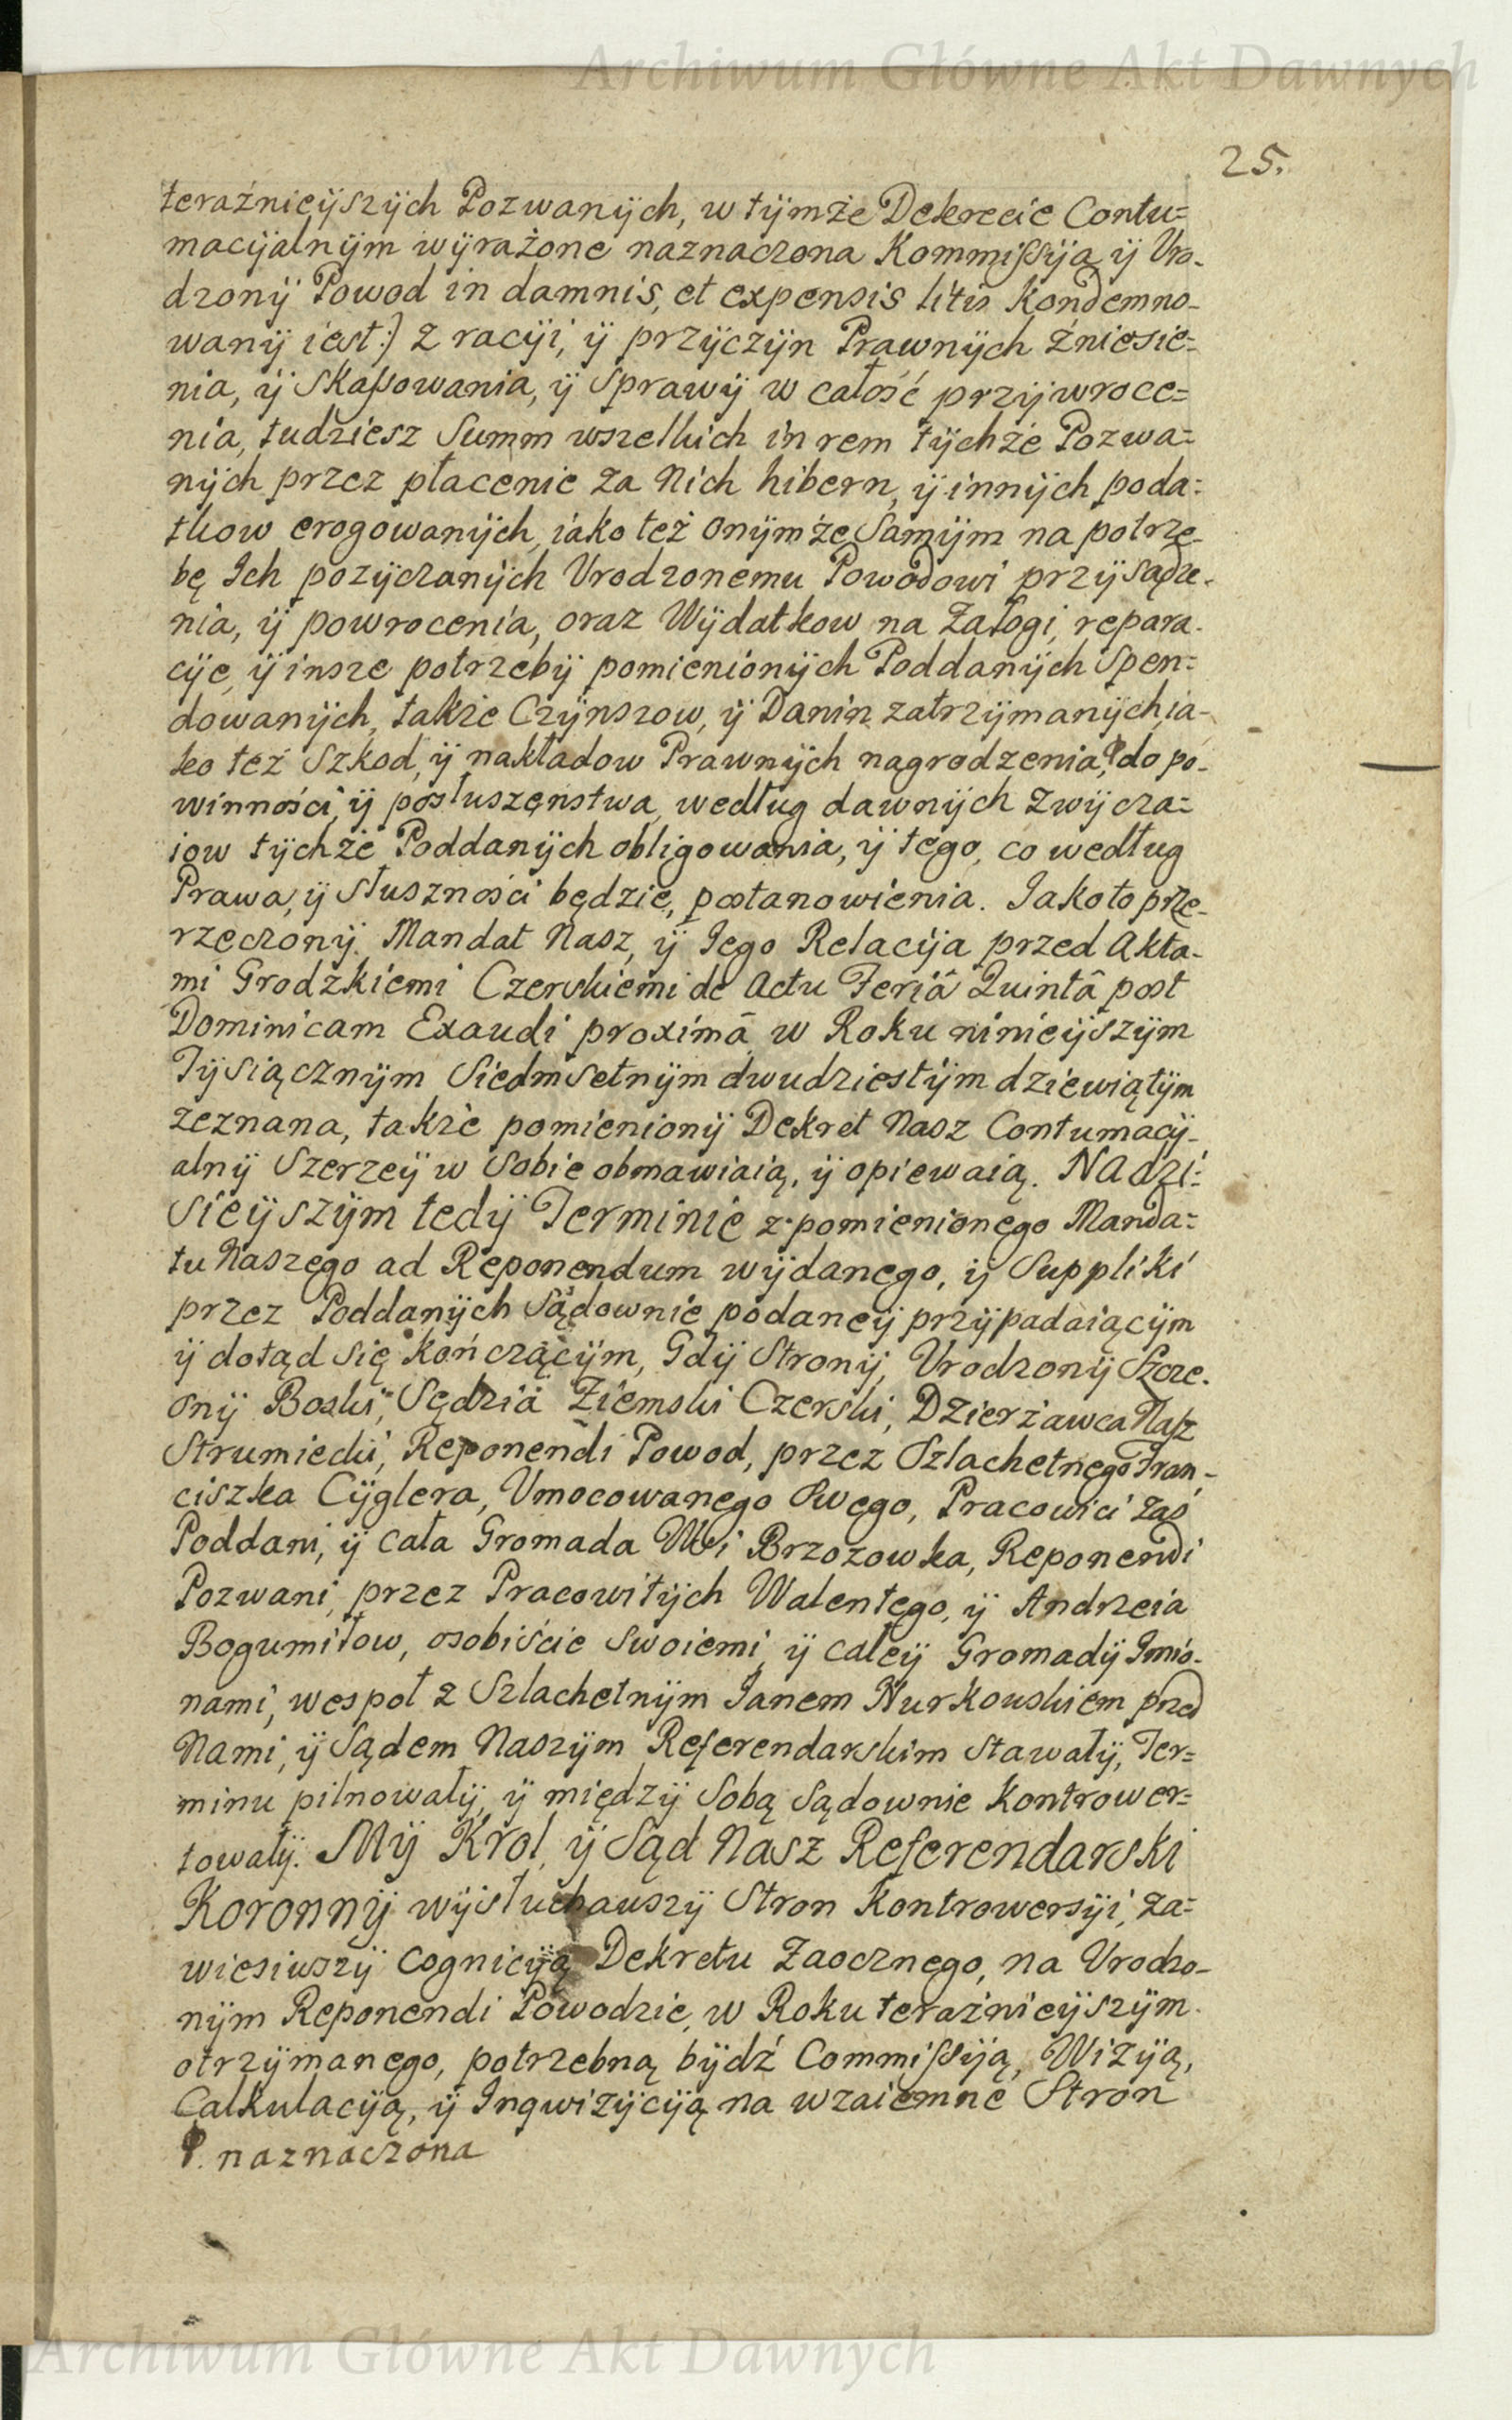 Archiwum Główne Akt Dawnych
25.
teraźnieÿszÿch Pozwanÿch, w tÿmże Dekrecie Contu=
macÿalnÿm wÿrażone naznaczona Kommissÿa ÿ Uro-
dzonÿ Powod in damnis, et expensis litis Kondemno-
wanÿ iest:) z racÿi, ÿ przÿczÿn Prawnÿch Zniesie=
nia, ÿ Skassowania, ÿ Sprawÿ w całość przÿwroce=
nia, tudziesz Summ wszelkich in rem tÿchże Pozwa=
nÿch przez płacenie za Nich hibern, ÿ innÿch poda=
tkow erogowanÿch, iako też onÿmże Samÿm na potrze-
bę Ich pozÿczanÿch Urodzonemu Powodowi przÿsądze-
nia, ÿ powrocenia, oraz Wÿdatkow na Załogi, repara-
cÿe, ÿ insze potrzebÿ pomienionÿch Poddanÿch Spen=
dowanÿch, także Czÿnszow, ÿ Danin zatrzÿmanÿch, ia-
ko też Szkod, ÿ nakładow Prawnÿch nagrodzenia, do po-
winności, ÿ posłuszenstwa, według dawnÿch zwÿcza=
iow tÿchże Poddanÿch obligowania, ÿ tego, co według
Prawa, ÿ słuszności będzie, postanowienia. Jakoto prze-
rzeczonÿ Mandat Nasz, ÿ Jego Relacÿa przed Akta-
mi Grodzkiemi Czerskiemi de Actu Feriâ Quintâ post
Dominicam Exaudi proximâ w Roku ninieÿszÿm
Tÿsiącznÿm Siedmsetnÿm dwudziestÿm dziewiątÿm
zeznana, także pomienionÿ Dekret Nasz Contumacÿ-
alnÿ Szerzeÿ w Sobie obmawiaią, ÿ opiewaią. NA dzi=
SieÿSzÿm tedÿ Terminie z pomienionego Manda=
tu Naszego ad Reponendum wÿdanego, ÿ Suppliki
przez Poddanÿch Sądownie podaneÿ przÿpadaiącÿm
ÿ dotąd się kończącÿm, Gdÿ Stronÿ, Urodzonÿ Szcze-
snÿ Boski, Sędzia Ziemski Czerski, Dzierżawca Nasz
Strumiecki, Reponendi Powod, przez Szlachetnego Fran-
ciszka Cÿglera, Umocowanego Swego, Pracowici zaś
Poddani, ÿ cała Gromada Wsi Brzozowka, Reponendi
Pozwani, przez Pracowitÿch Walentego, ÿ Andrzeia
Bogumiłow, osobiście Swoiemi, ÿ całeÿ Gromadÿ Imio-
nami, wespoł z Szlachetnÿm Janem Nurkowskiem przed
Nami, ÿ Sądem Naszÿm Referendarskim Stawałÿ, Ter=
minu pilnowałÿ, ÿ międzÿ Sobą Sądownie Kontrower=
towałÿ. MŸ Krol, ÿ Sąd Nasz Referendarski
Koronnÿ wÿsłuchawszÿ Stron Kontrowersÿi, za=
wiesiwszÿ Cognicÿą Dekretu Zaocznego, na Urodzo-
nÿm Reponendi Powodzie, w Roku teraźnieÿszÿm
otrzÿmanego, potrzebną bÿdź Commissÿą, Wizÿą,
Calkulacÿą, ÿ Inqwizÿcÿą na wzaiemne Stron
naznaczona
Archiwum Główne Akt Dawnych